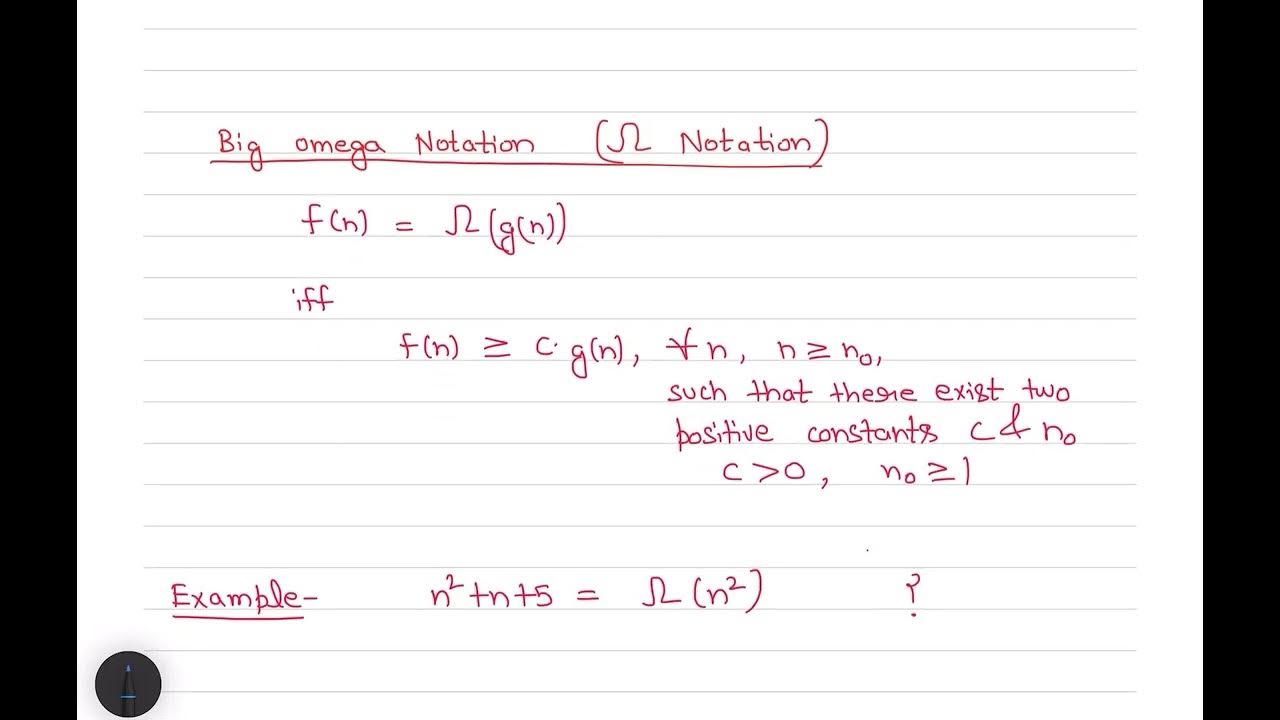 Big omega Notation (Ω Notation)
f(n) = Ω(g(n))
iff
f(n) ≥ c. g(n), ∀ n, n ≥ n₀,
such that there exist two
positive constants c & n₀
c > 0, n₀ ≥ 1
Example- n²+n+5 = Ω(n²) ?